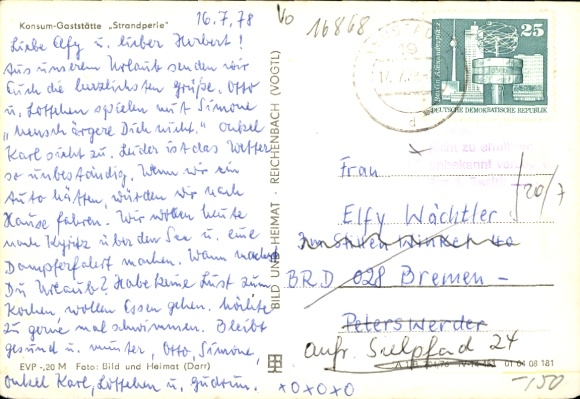 Konsum-Gaststätte „Strandperle"
16.7.78
Vo
16868
Liebe Elfy u. lieber Herbert!
Aus unserem Urlaub senden wir
Euch die herzlichsten Grüße. Otto
u. Lottchen spielen mit Simone
„Mensch ärgere Dich nicht." Onkel
Karl sieht zu. Leider ist das Wetter
so unbeständig. Wenn wir ein
Auto hätten, würden wir nach
Hause fahren. Wir wollen heute
nach Kyritz über den See u. eine
Dampferfahrt machen. Wann
Du Urlaub? Habe keine Lust zum
Kochen, wollen Essen gehen. Möchte
zu gerne mal schwimmen. Bleibt
gesund u. munter, Otto, Simone,
Onkel Karl, Lottchen u. Gudrun.
EVP -,20 M Foto: Bild und Heimat (Darr)
BILD UND HEIMAT REICHENBACH (VOGTL)
25
Berlin, Alexanderplatz
DEUTSCHE DEMOKRATISCHE REPUBLIK
Frau
Elfy Wächtler
20/7
BRD 028 Bremen -
Peterswerder
auf. Sielpfad 24
01 04 08 181
xoxoxo
-150